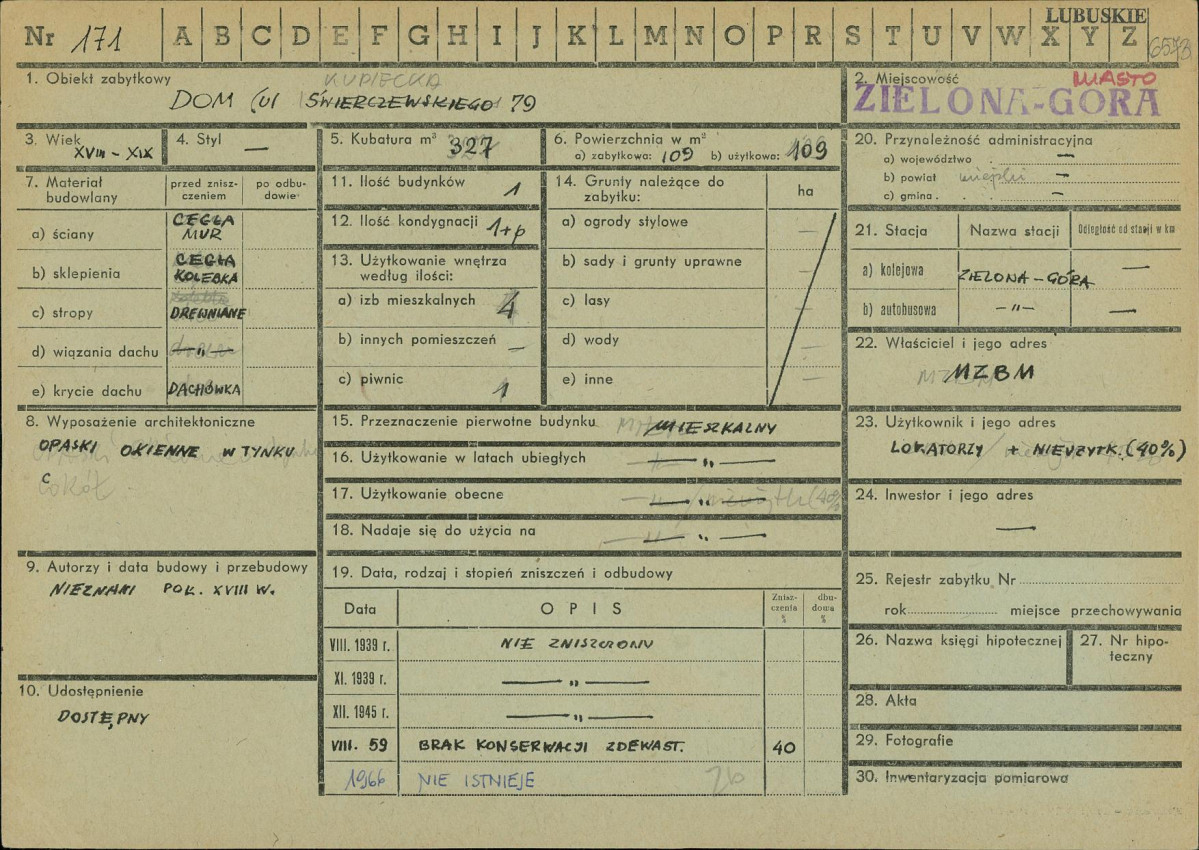 LUBUSKIE
Nr 171 A B C D E F G H I J K L M N O P R S T U V W X Y Z 6573
1. Obiekt zabytkowy
KUPIECKA
DOM (ul ŚWIERCZEWSKIEGO 79
2. Miejscowość MIASTO
ZIELONA-GÓRA
3. Wiek
XVIII - XIX
4. Styl —
5. Kubatura m³ 327
6. Powierzchnia w m²
a) zabytkowa: 109 b) użytkowa: 109
7. Materiał budowlany
przed znisz-
czeniem
po odbu-
dowie
a) ściany CEGŁA
MUR
b) sklepienia CEGŁA
KOLEBKA
c) stropy DREWNIANE
d) wiązania dachu — „ —
e) krycie dachu DACHÓWKA
8. Wyposażenie architektoniczne
OPASKI OKIENNE W TYNKU
C
cokół
9. Autorzy i data budowy i przebudowy
NIEZNANI POŁ. XVIII W.
10. Udostępnienie
DOSTĘPNY
11. Ilość budynków 1
12. Ilość kondygnacji 1+p
13. Użytkowanie wnętrza
według ilości:
a) izb mieszkalnych 4
b) innych pomieszczeń —
c) piwnic 1
14. Grunty należące do
zabytku:
ha
a) ogrody stylowe —
b) sady i grunty uprawne —
c) lasy —
d) wody —
e) inne —
15. Przeznaczenie pierwotne budynku MIESZKALNY
16. Użytkowanie w latach ubiegłych — „ —
17. Użytkowanie obecne — „ —
18. Nadaje się do użycia na — „ —
19. Data, rodzaj i stopień zniszczeń i odbudowy
Data
OPIS
Znisz-
czenia
%
dbu-
dowa
%
VIII. 1939 r. NIE ZNISZCZONY
XI. 1939 r. — „ —
XII. 1945 r. — „ —
VIII. 59 BRAK KONSERWACJI ZDEWAST. 40
1966 NIE ISTNIEJE
20. Przynależność administracyjna
a) województwo —
b) powiat —
c) gmina —
21. Stacja
Nazwa stacji
Odległość od stacji w km
a) kolejowa ZIELONA-GÓRA —
b) autobusowa — „ — —
22. Właściciel i jego adres
MZBM
23. Użytkownik i jego adres
LOKATORZY + NIEUŻYTK. (40%)
24. Inwestor i jego adres
—
25. Rejestr zabytku Nr
rok miejsce przechowywania
26. Nazwa księgi hipotecznej
27. Nr hipo-
teczny
28. Akta
29. Fotografie
30. Inwentaryzacja pomiarowa